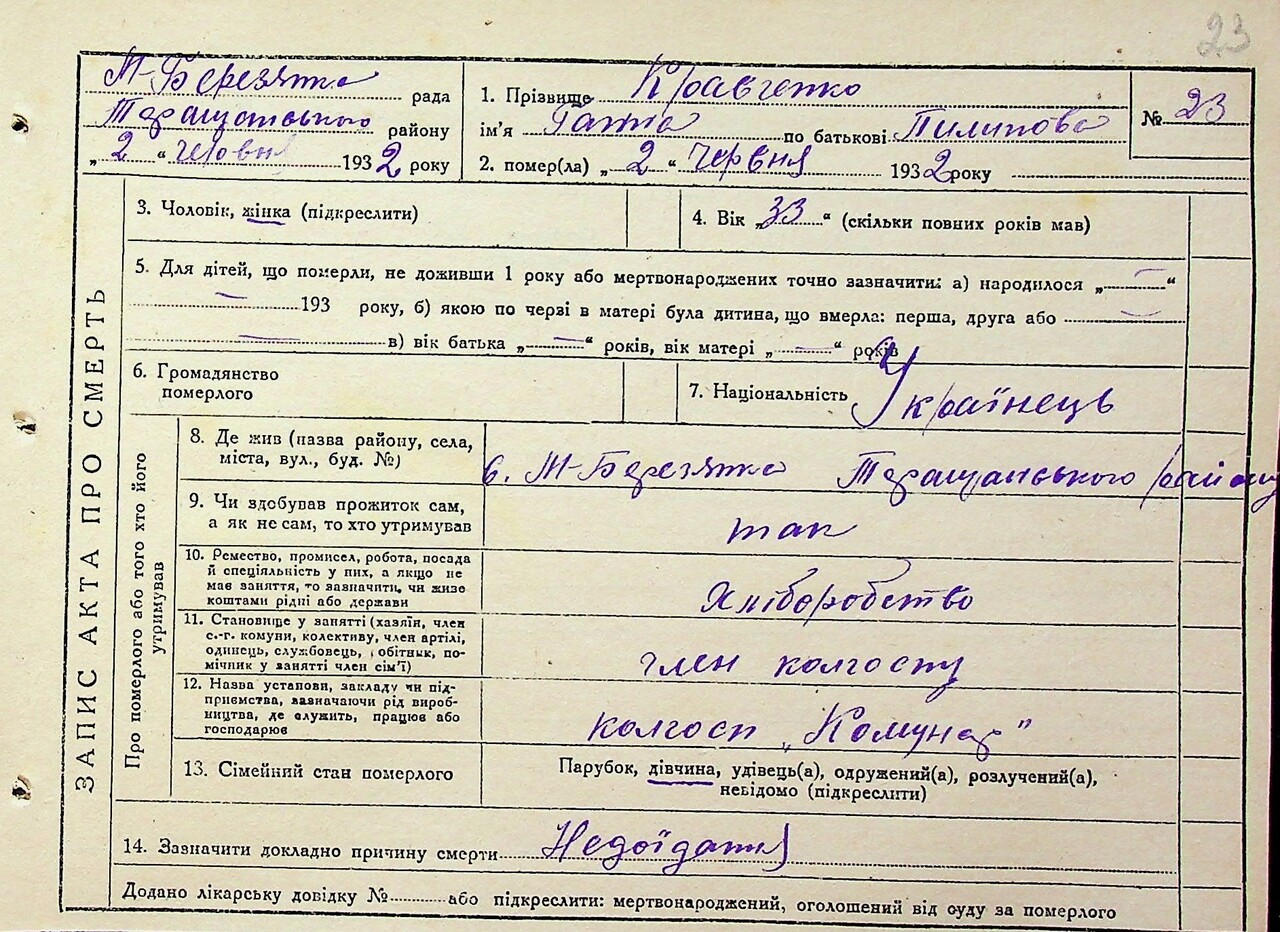 23
М-Березянка рада
Таращанського району
„ 2 “ червня 1932 року
1. Прізвище Кравченко
ім'я Ганна по батькові Пилипова
2. помер(ла) „ 2 “ Червня 1932 року
№ 23
ЗАПИС АКТА ПРО СМЕРТЬ
3. Чоловік, жінка (підкреслити)
4. Вік „ 33 “ (скільки повних років мав)
5. Для дітей, що померли, не доживши 1 року або мертвонароджених точно зазначити: а) народилося „ — “
— 193 року, б) якою по черзі в матері була дитина, що вмерла: перша, друга або —
— в) вік батька „ — “ років, вік матері „ — “ років
6. Громадянство
померлого
7. Національність Українець
Про померлого або того хто його
утримував
8. Де жив (назва району, села,
міста, вул., буд. №)
с. М-Березянка Таращанського району
9. Чи здобував прожиток сам,
а як не сам, то хто утримував
так
10. Ремество, промисел, робота, посада
й спеціяльність у них, а якщо не
має заняття, то зазначити, чи живе
коштами рідні або держави
Хліборобство
11. Становище у занятті (хазяїн, член
с.-г. комуни, колективу, член артілі,
одинець, службовець, робітник, по-
мічник у занятті член сім'ї)
член колгоспу
12. Назва установи, закладу чи під-
приємства, зазначаючи рід вироб-
ництва, де служить, працює або
господарює
колгосп „Комунар”
13. Сімейний стан померлого
Парубок, дівчина, удівець(а), одружений(а), розлучений(а),
невідомо (підкреслити)
14. Зазначити докладно причину смерти Недоїдання
Додано лікарську довідку № або підкреслити: мертвонароджений, оголошений від суду за померлого